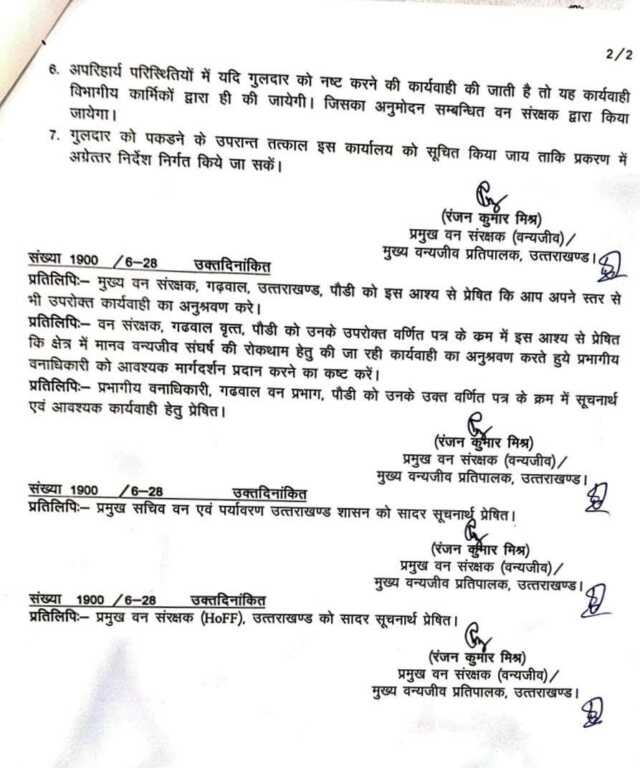 2/2
6. अपरिहार्य परिस्थितियों में यदि गुलदार को नष्ट करने की कार्यवाही की जाती है तो यह कार्यवाही
विभागीय कार्मिकों द्वारा ही की जायेगी। जिसका अनुमोदन सम्बन्धित वन संरक्षक द्वारा किया
जायेगा।
7. गुलदार को पकडने के उपरान्त तत्काल इस कार्यालय को सूचित किया जाय ताकि प्रकरण में
अग्रेत्तर निर्देश निर्गत किये जा सकें।
(रंजन कुमार मिश्र)
प्रमुख वन संरक्षक (वन्यजीव)/
मुख्य वन्यजीव प्रतिपालक, उत्तराखण्ड।
संख्या 1900 /6–28 उक्तदिनांकित
प्रतिलिपिः– मुख्य वन संरक्षक, गढ़वाल, उत्तराखण्ड, पौडी को इस आशय से प्रेषित कि आप अपने स्तर से
भी उपरोक्त कार्यवाही का अनुश्रवण करे।
प्रतिलिपिः– वन संरक्षक, गढवाल वृत्त, पौडी को उनके उपरोक्त वर्णित पत्र के कम में इस आशय से प्रेषित
कि क्षेत्र में मानव वन्यजीव संघर्ष की रोकथाम हेतु की जा रही कार्यवाही का अनुश्रवण करते हुये प्रभागीय
वनाधिकारी को आवश्यक मार्गदर्शन प्रदान करने का कष्ट करें।
प्रतिलिपिः– प्रभागीय वनाधिकारी, गढवाल वन प्रभाग, पौडी को उनके उक्त वर्णित पत्र के क्रम में सूचनार्थ
एवं आवश्यक कार्यवाही हेतु प्रेषित।
(रंजन कुमार मिश्र)
प्रमुख वन संरक्षक (वन्यजीव)/
मुख्य वन्यजीव प्रतिपालक, उत्तराखण्ड।
संख्या 1900 /6–28 उक्तदिनांकित
प्रतिलिपिः– प्रमुख सचिव वन एवं पर्यावरण उत्तराखण्ड शासन को सादर सूचनार्थ प्रेषित।
(रंजन कुमार मिश्र)
प्रमुख वन संरक्षक (वन्यजीव)/
मुख्य वन्यजीव प्रतिपालक, उत्तराखण्ड।
संख्या 1900 /6–28 उक्तदिनांकित
प्रतिलिपिः– प्रमुख वन संरक्षक (HoFF), उत्तराखण्ड को सादर सूचनार्थ प्रेषित।
(रंजन कुमार मिश्र)
प्रमुख वन संरक्षक (वन्यजीव)/
मुख्य वन्यजीव प्रतिपालक, उत्तराखण्ड।